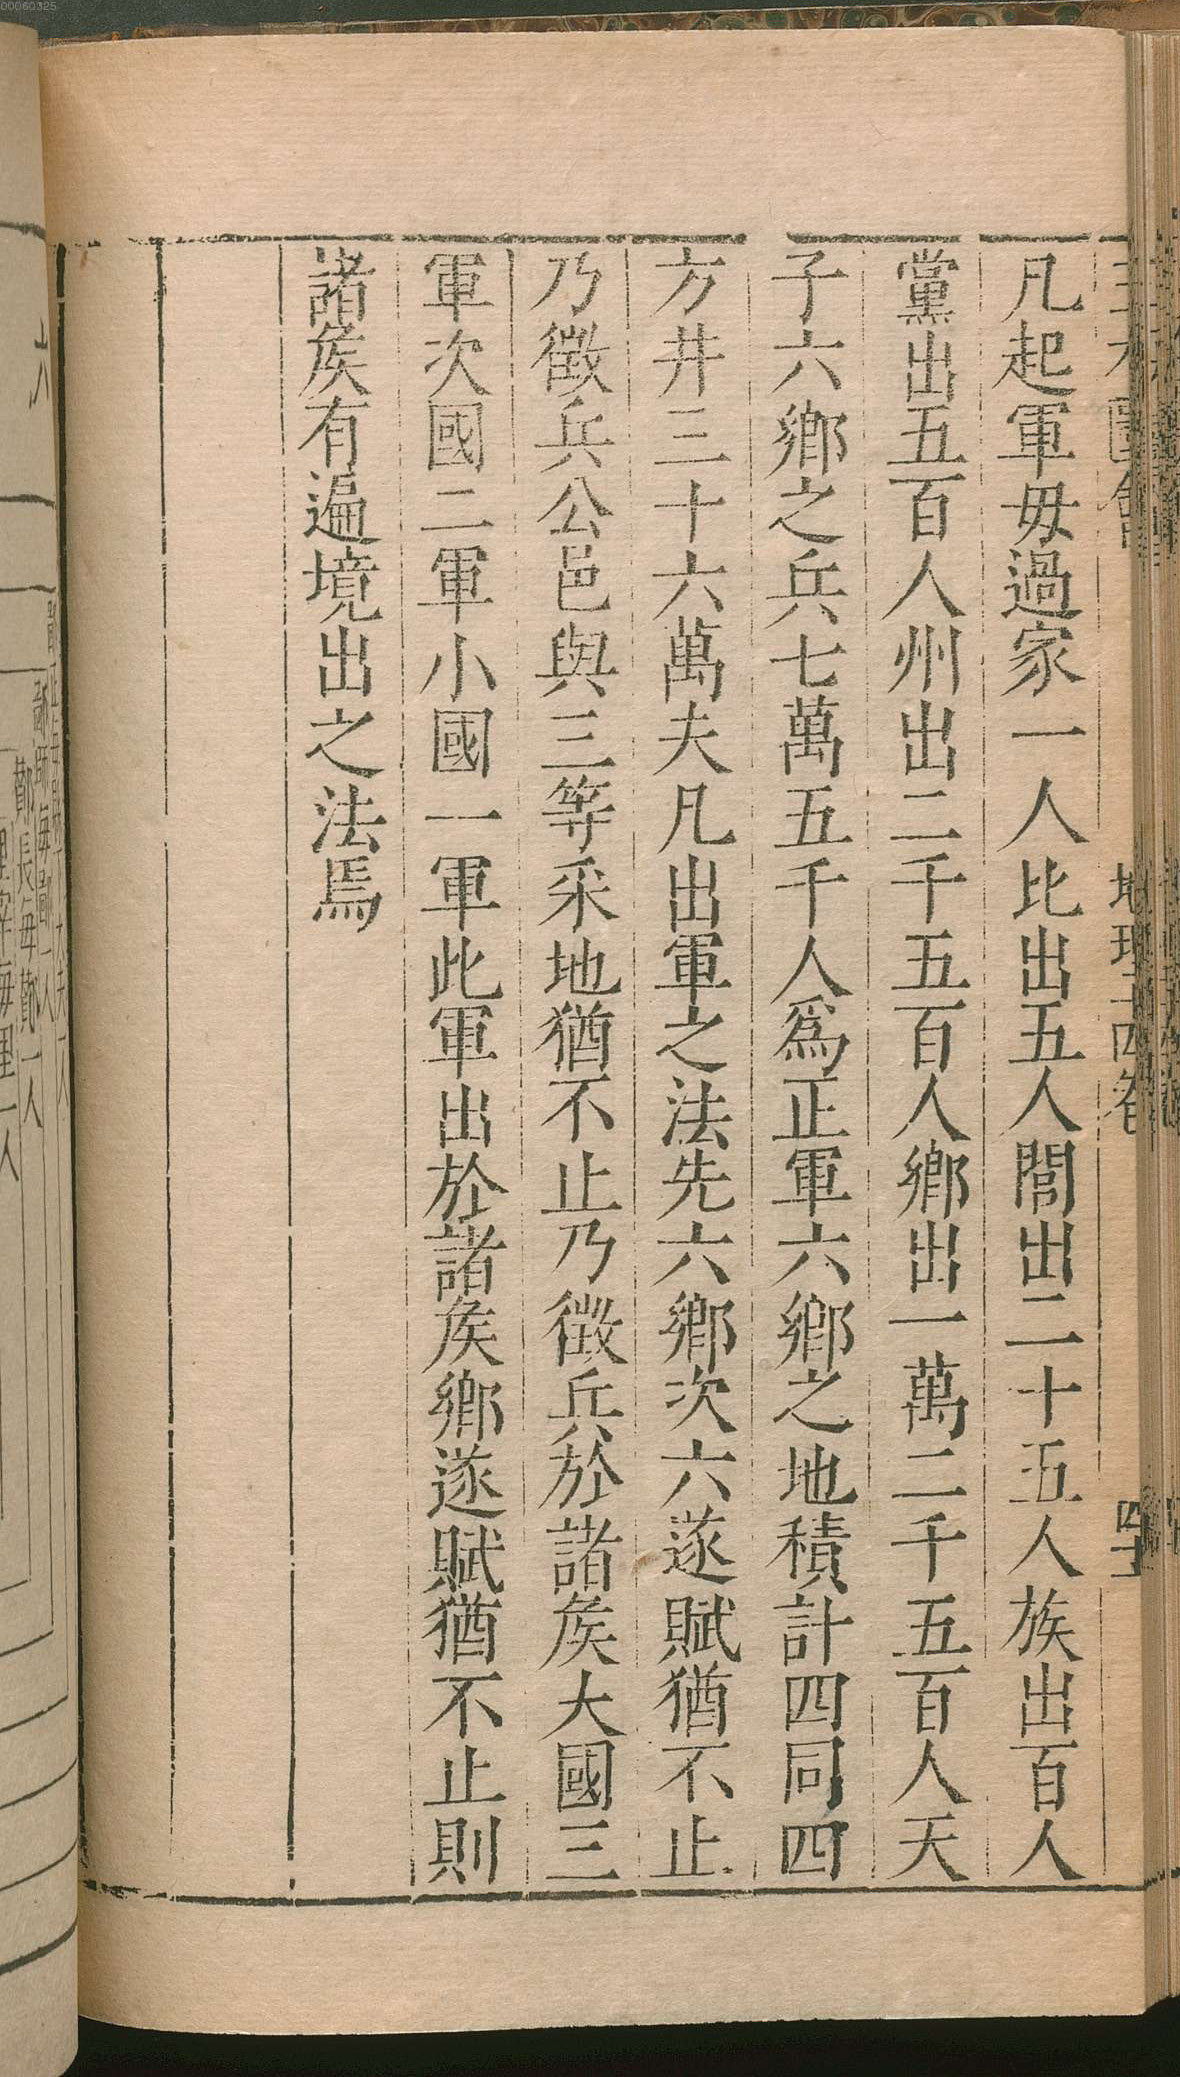 凡起軍毋過家一人比出五人閭出二十五人族出百人
黨出五百人州出二千五百人鄉出一萬二千五百人天
子六鄉之兵七萬五千人爲正軍六鄉之地積計四同四
方井三十六萬夫凡出軍之法先六鄉次六遂賦猶不止
乃徵兵公邑與三等采地猶不止乃徵兵於諸矦大國三
軍次國二軍小國一軍此軍出於諸矦鄉遂賦猶不止則
諸矦有遍境出之法焉
地理十四卷
六
酇長每酇一人
里宰每里一人
00060325